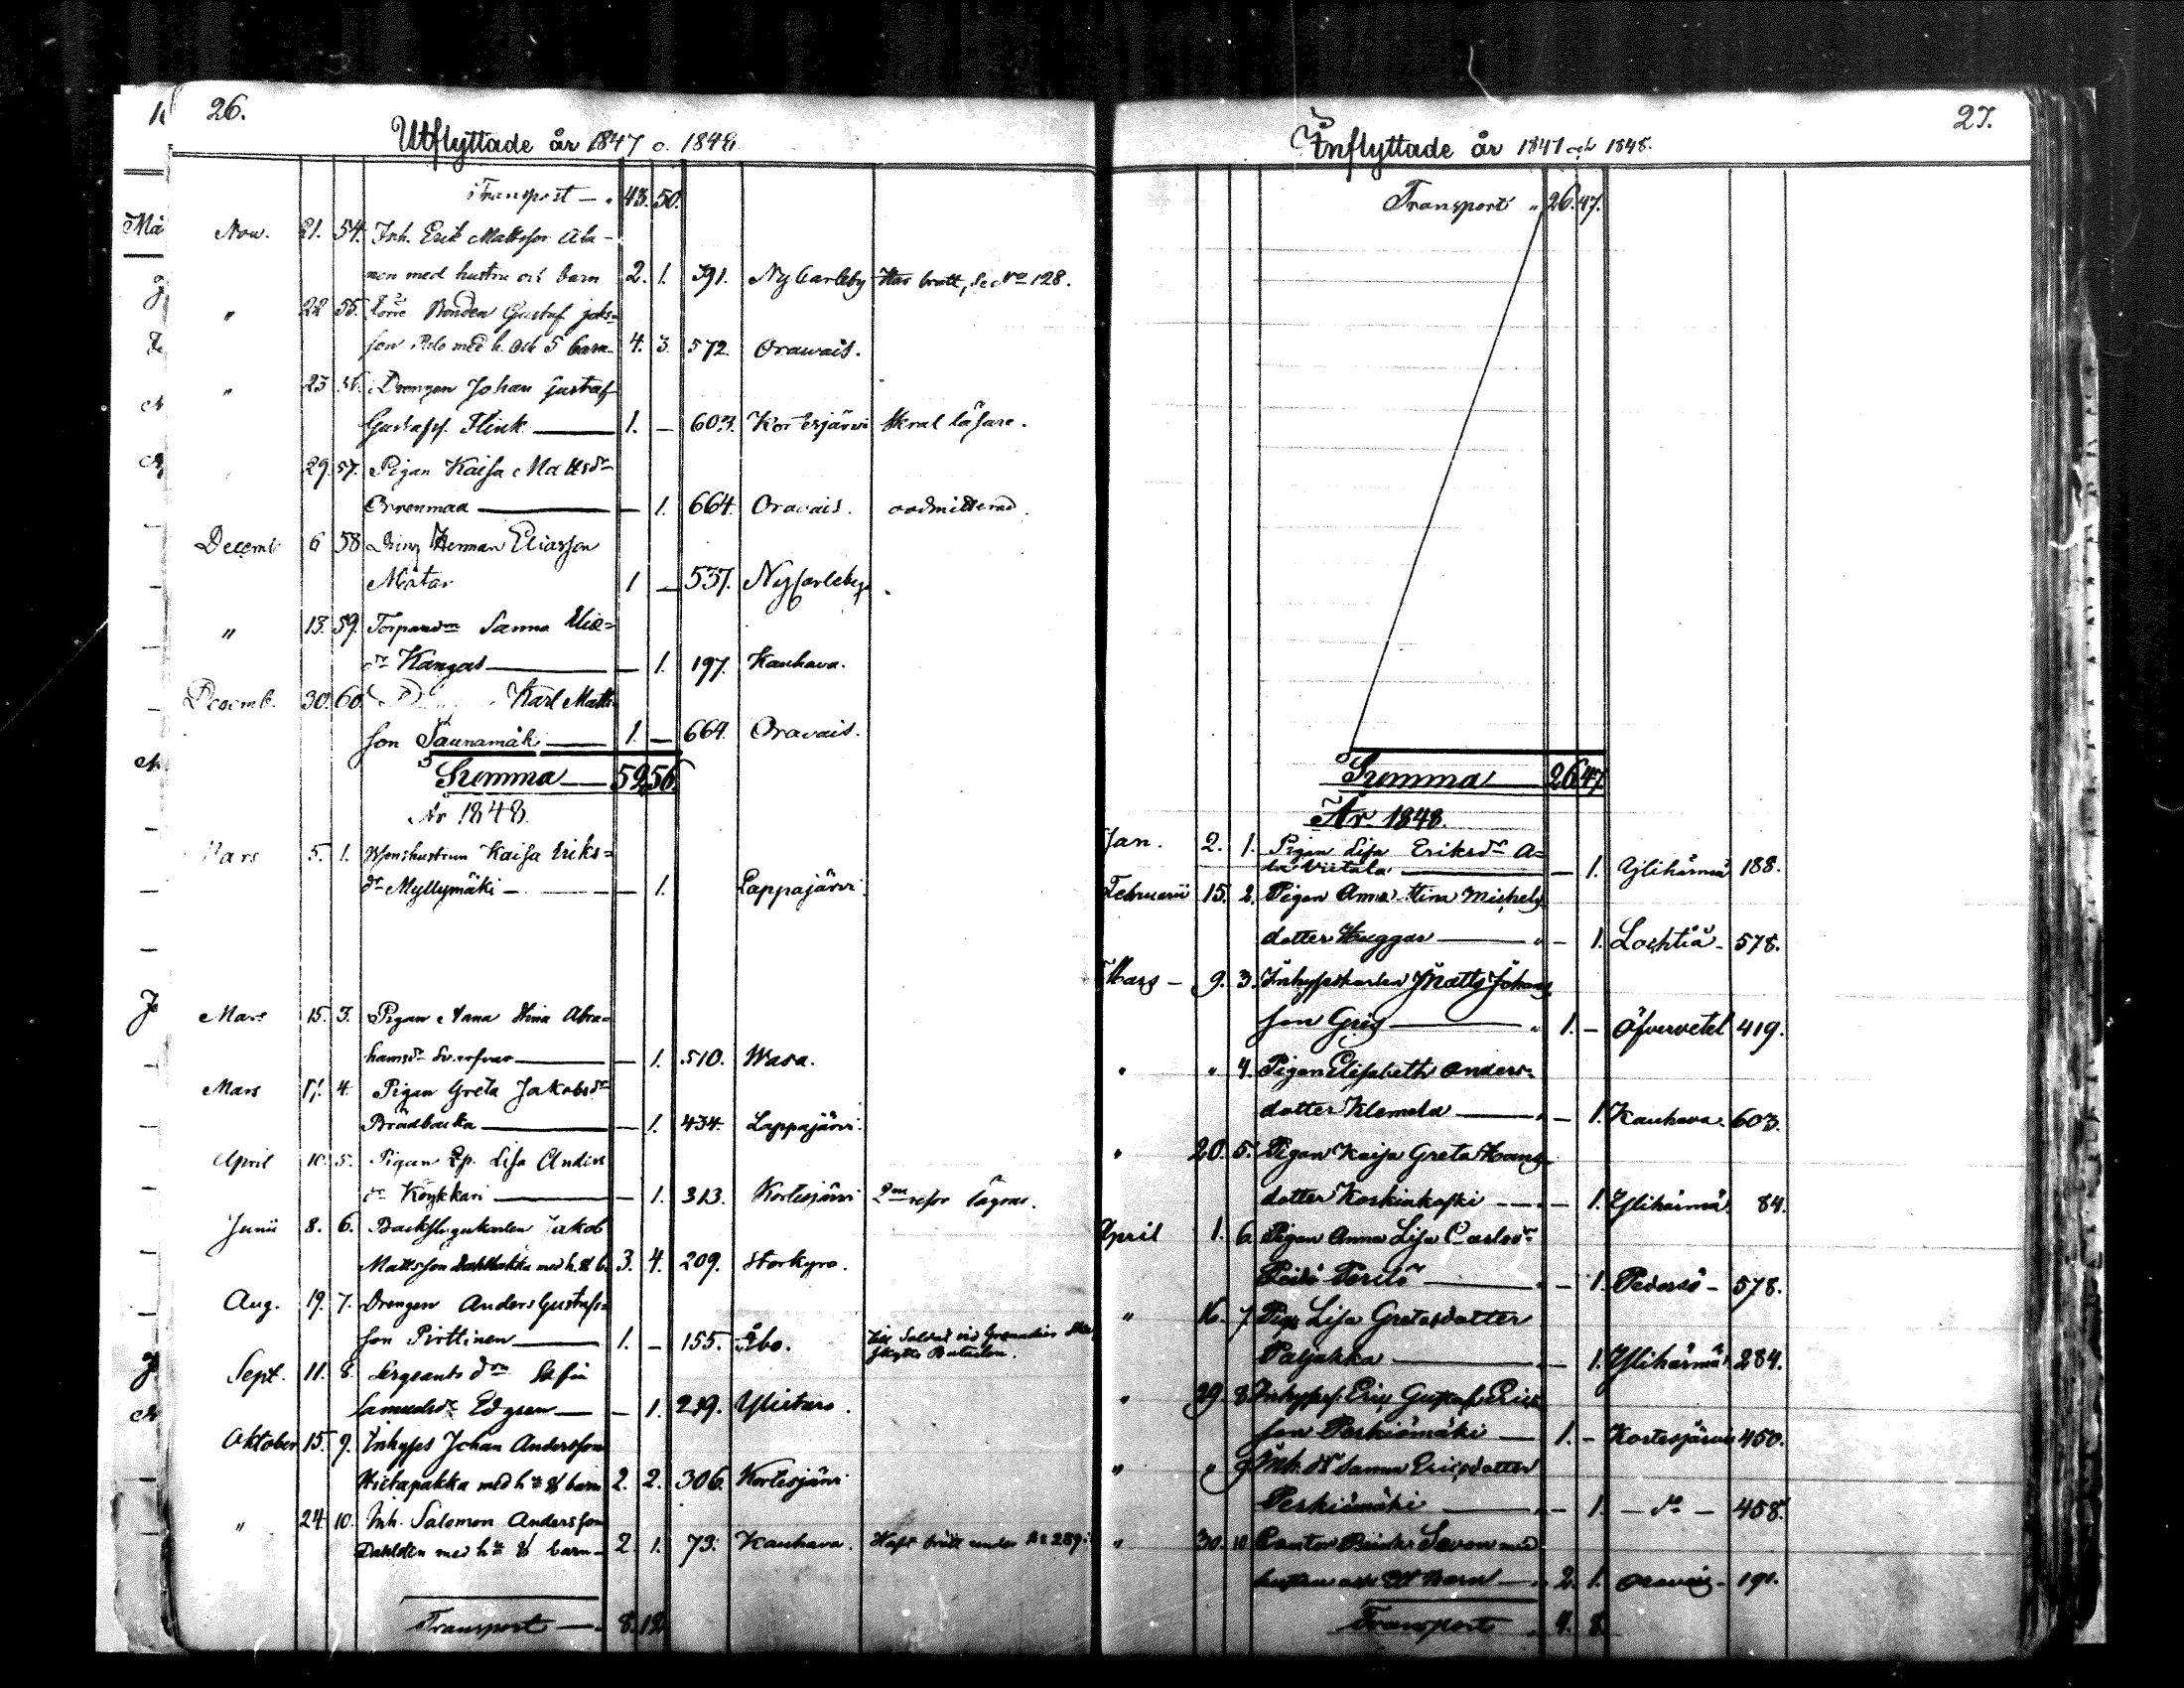 26.
Utflyttade år 1847 o. 1848
Transport — 43. 50.
Nov. 21. 54. Inh. Erik Mattsson Ala-
nen med hustru och barn 2. 1. 391. Ny Carleby Har brutt, se No 128.
" 22 55. Bonden Gustaf Jaks=
son med h. och 5 barn 4. 3. 572. Orawais.
" 23 56. Drengen Johan Gustaf
Gustafss. Flink — 1. — 603. Kortesjärvi Skral läsare.
29. 57. Pigan Kaisa Mattsdr
Orrenmaa — — 1. 664. Oravais. oadmitterad.
Decemb. 6 58 Dreng Herman Eliasson
Matar 1 — 537. NyCarleby.
" 13. 59. Sanna Elia=
dr Kangas — — 1. 197. Kauhava.
Decemb. 30. 60. Karl Matts
son Saunamäk — 1. — 664. Oravais.
Summa — 52. 56.
År 1848.
Mars 5. 1. Kaisa Eriks=
dr Myllymäki — — 1. Lappajärvi.
Mars 15. 3. Pigan Anna Stina Abra=
hamsdr — — 1. 510. Wasa.
Mars 17. 4. Pigan Greta Jakobsdr
Brådbacka — — 1. 434. Lappajärvi.
April 10. 5. Pigan Lisa Anders
dr Köykkäri — — 1. 313. Kortesjärvi
Junii 8. 6. Jakob
Mattsson med h. & b. 3. 4. 209. Storkyro.
Aug. 19. 7. Drengen Anders Gustafs=
son Pirttinen — 1. — 155. Åbo. till Soldat vid Grenadier
Skytte Bataillon.
Sept. 11. 8. Sergeants
Samuelsdr Edgren — — 1. 219. Ylistaro.
Oktober 15. 9. Inhyses Johan Andersson
Hietapakka med hu & barn 2. 2. 306. Kortesjärvi
" 24 10. Inh. Salomon Andersson
Dahldin med hu & barn — 2. 1. 73. Kauhava. Haft brutt under No 289.
Transport — 8. 12.
27.
Inflyttade år 1847 och 1848.
Transport " 26. 47.
Summa — 26. 47.
År 1848.
Jan. 2. 1. Pigan Lisa Eriksdr A=
la Viitala — — 1. Ylihärmä 188.
Februarii 15. 2. Pigan Anna Stina Michels
dotter Huggar — " — 1. Lochteå — 578.
Mars — 9. 3. Matts Johans
son Grig — " 1. — Öfvervetel 419.
" " 4. Pigan Elisabeth Anders=
dotter Klemola — — 1. Kauhava. 603.
" 20. 5. Pigan Kaisa Greta Hans
dotter Koskinkoski — — 1. Ylihärmä 84.
April 1. 6. Pigan Anna Lisa Carlsdr
— — 1. Pedersö — 578.
" 16. 7 Pig. Lisa Gretasdotter
Paljakka — — 1. Ylihärmä 284.
" 29. 8 Eric Gustaf Erics
son Peskiömäki — 1. — Kortesjärvi 450.
" " 9 Sanna Ericsdotter
Peskiömäki — — 1. — do — 458.
" 30. 10 Cantor Savon med
hustru och ett barn — 2. 1. Oravais — 191.
Transport 4. 8.